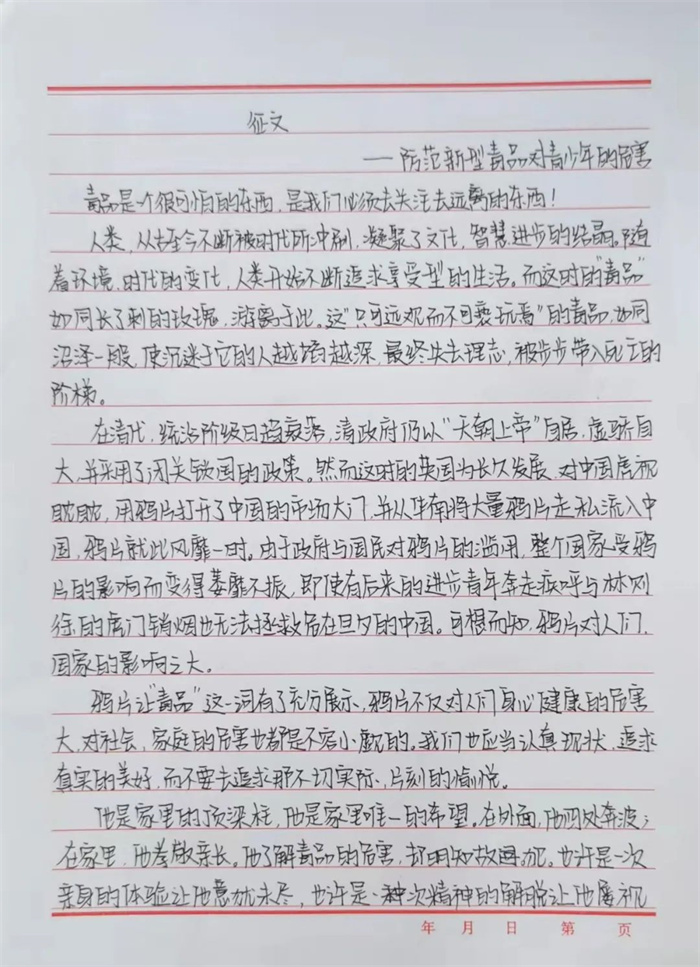 征文
——防范新型毒品对青少年的危害
毒品是个很可怕的东西,是我们必须去关注去远离的东西!
人类,从古至今不断被时代所冲刷,凝聚了文化,智慧进步的结晶。随
着环境、时代的变化,人类开始不断追求享受型的生活。而这时的“毒品”
如同长了刺的玫瑰,游离于此。这“只可远观而不可亵玩焉”的毒品,如同
沼泽一般,使沉迷于它的人越陷越深,最终失去理志,被步步带入死亡的
阶梯。
在清代,统治阶级日趋衰落,清政府仍以“天朝上帝”自居,虚骄自
大,并采用了闭关锁国的政策。然而这时的英国为长久发展,对中国虎视
眈眈,用鸦片打开了中国的市场大门,并从华南将大量鸦片走私流入中
国,鸦片就此风靡一时。由于政府与国民对鸦片的滥用,整个国家受鸦
片的影响而变得萎靡不振,即使有后来的进步青年奔走疾呼与林则
徐的虎门销烟也无法拯救危在旦夕的中国。可根而知,鸦片对人们,
国家的影响之大。
鸦片让“毒品”这一词有了充分展示,鸦片不仅对人们身心健康的危害
大,对社会,家庭的危害也都是不容小觑的。我们也应当认真现状,追求
真实的美好,而不要去追求那不切实际、片刻的愉悦。
他是家里的顶梁柱,他是家里唯一的希望。在外面,他四处奔波;
在家里,他孝敬亲长。他了解毒品的危害,却明知故犯。也许是一次
亲身的体验让他意犹未尽,也许是一种次精神的解脱让他屡视
年 月 日 第 页